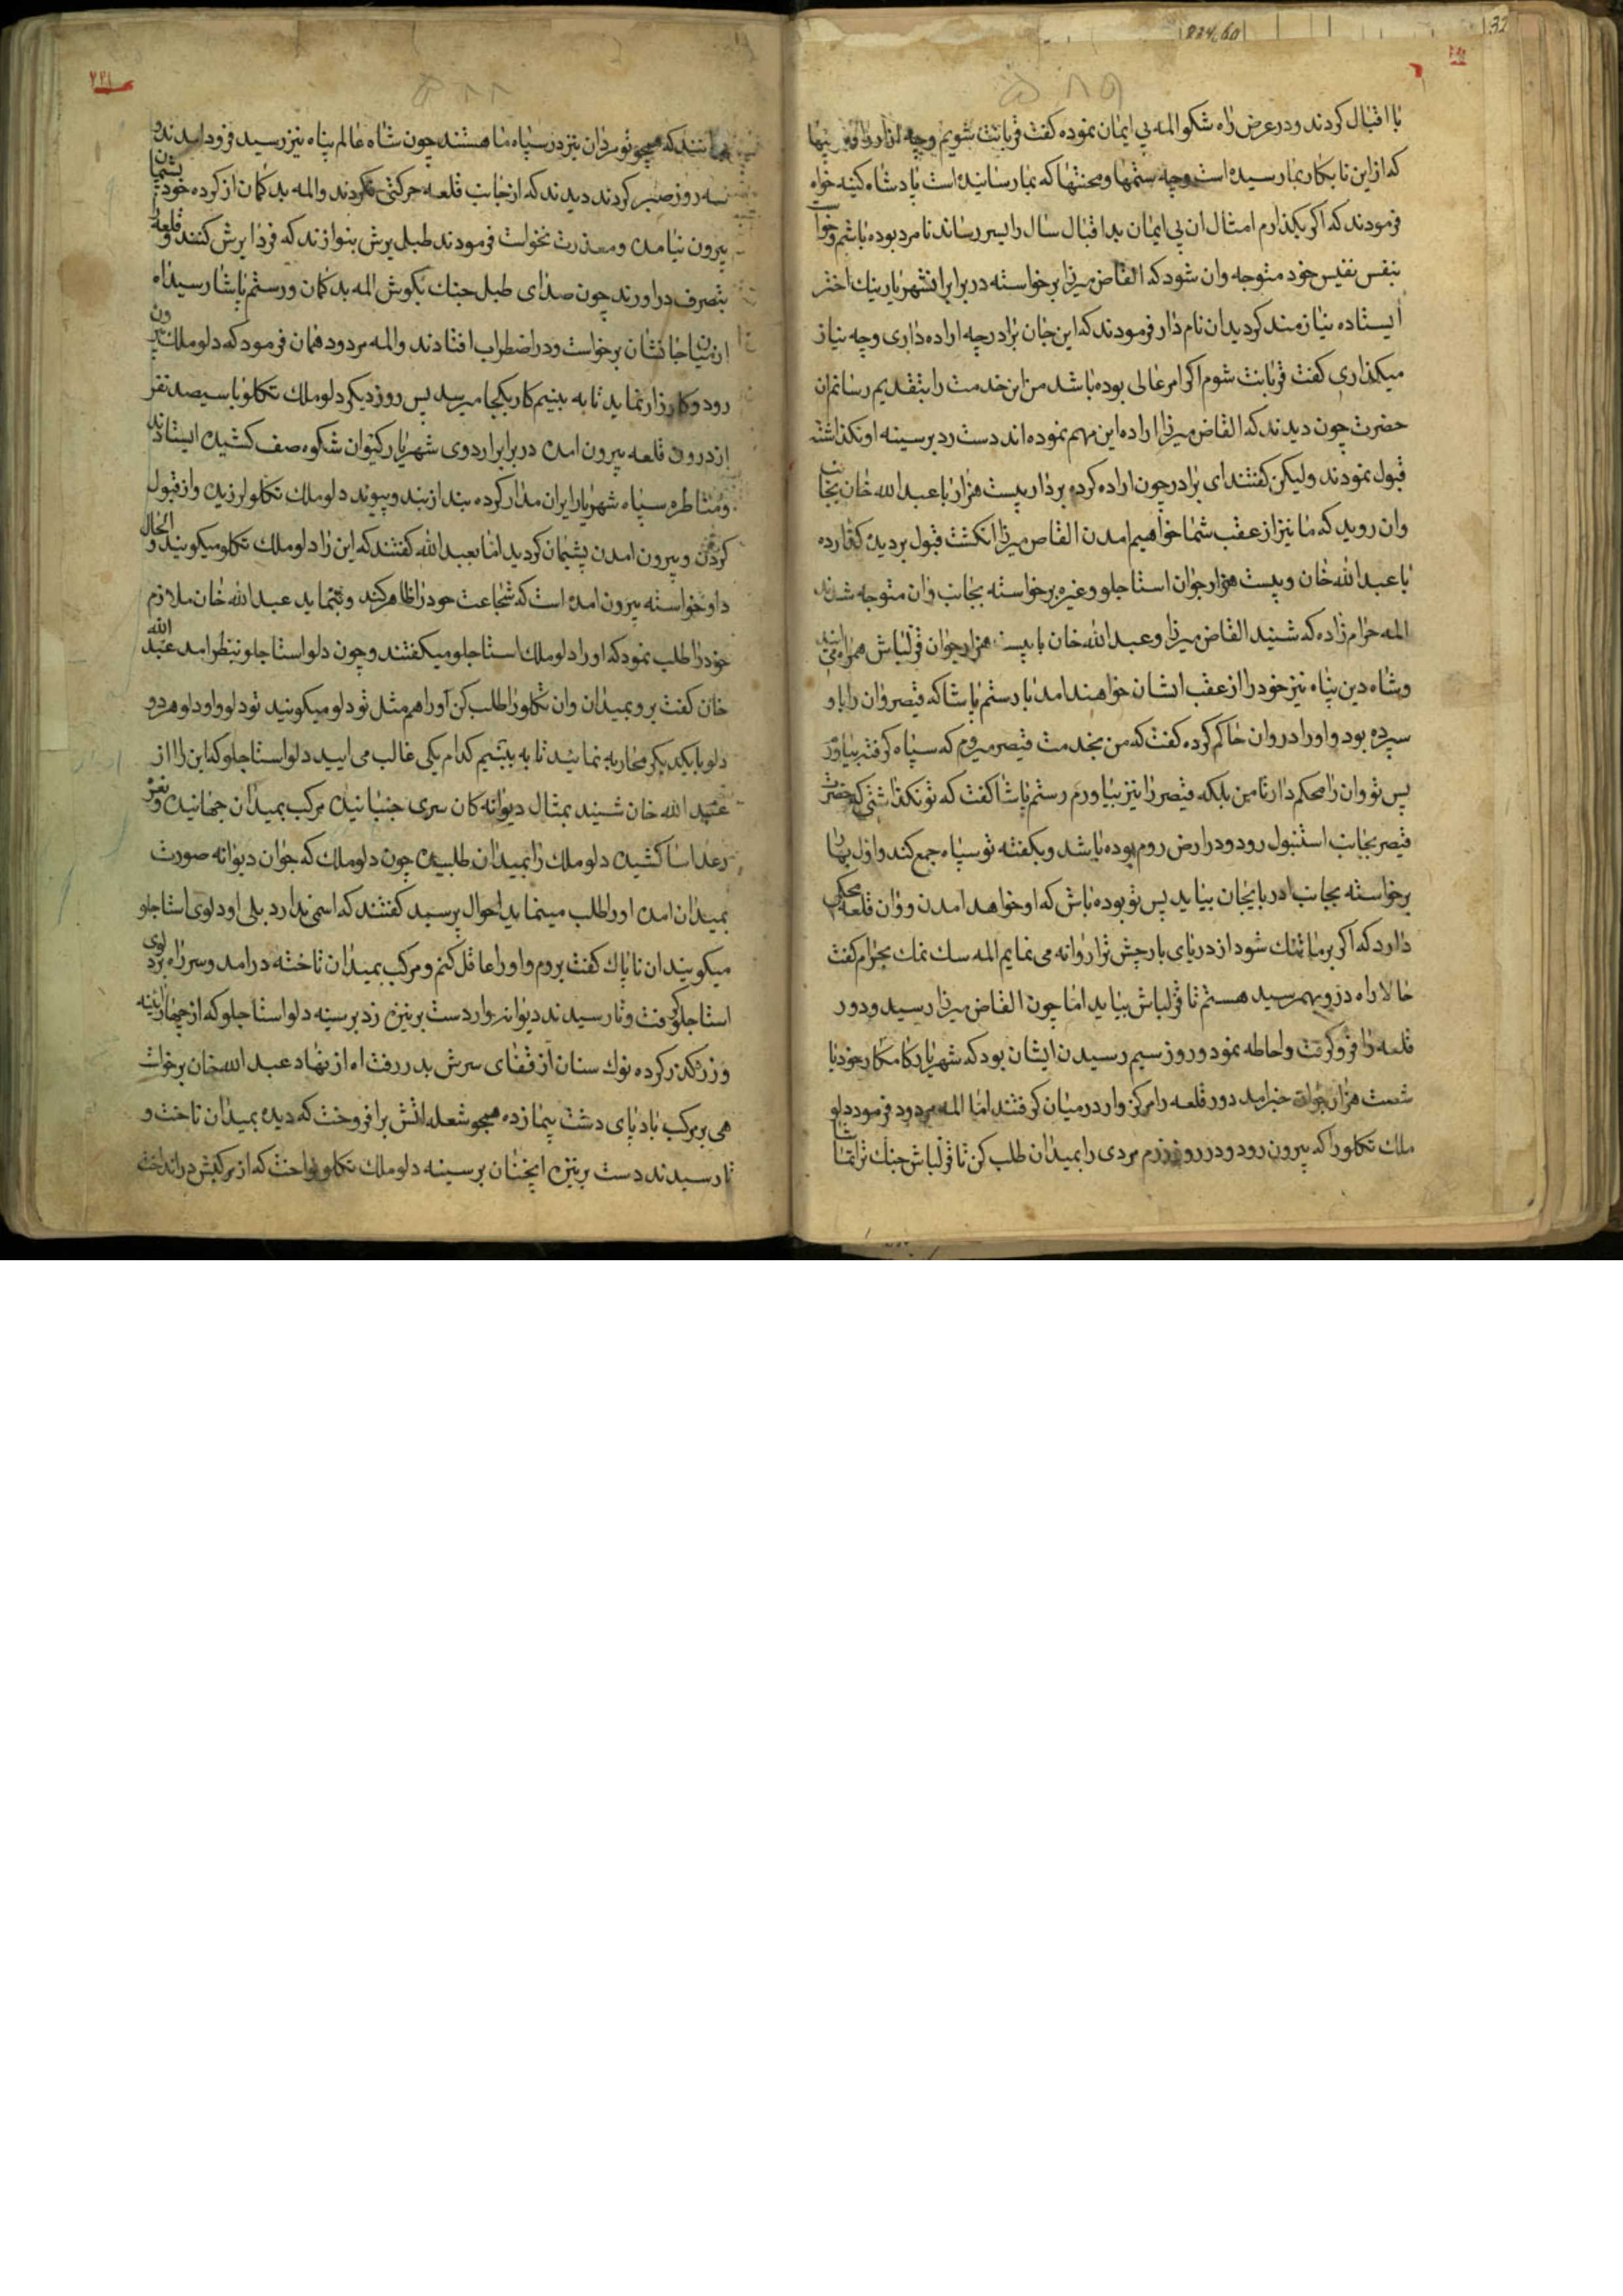 با اقبال کردند و در عرض راه شکوه المه بی ایمان نموده کفت قربانت شویم وچه
که از این نابکار بما رسیده است وچه ستمها ومحنتها که بما رسانیده است پادشاه کینه خواه
فرمودند که اکر بکذارم امثال ان بی ایمان بد اقبال سال را بسر رساند نامرد بوده باشم و خواست
بنفس نفیس خود متوجه وان شود که القاص میرزا برخواسته در برابر انشهریار نیك اختر
ایستاده نیازمند کردید ان نام دار فرمودند که این جان برادر چه اراده داری وچه نیاز
میکذاری کفت قربانت شوم اکر امر عالی بوده باشد من این خدمت را بتقدیم رسانم ان
حضرت چون دیدند که القاص میرزا اراده این مهم نموده اند دست رد بر سینه او نکذاشته
قبول نمودند ولیکن کفتند ای برادر چون اراده کرده بردار بیست هزار با عبد الله خان بجانب
وان روید که ما نیز از عقب شما خواهیم امدن القاص میرزا انکشت قبول بر دیده کذارده
با عبد الله خان و بیست هزار جوان استاجلو وغیره برخواسته بجانب وان متوجه شدند
المه حرام زاده که شنید القاص میرزا وعبد الله خان با بیست هزار جوان قزلباش همراه
وشاه دین پناه نیز خود را از عقب ایشان خواهند امد با رستم پاشا که قیصر وان را باو
سپرده بود واو را در وان حاکم کرده کفت که من بخدمت قیصر میروم که سپاه کرفته بیاورم
پس تو وان را محکم دار تا من بلکه قیصر را نیز بیاورم رستم پاشا کفت که تو نکذاشتی که حضرت
قیصر بجانب استنبول رود و در ارض روم بوده باشد وبکفته تو سپاه جمع کند و اول بهار
برخواسته بجانب ادربایجان بیاید پس تو بوده باش که او خواهد امدن و وان قلعه محکمی
دارد که اکر بر ما تنك شود از دریای بارچش ترا روانه می نمایم المه سك نمك بحرام کفت
حالا راه در وبهم رسید هستم تا قزلباش بیاید اما چون القاص میرزا رسید و دور
قلعه را فرو کرفت واحاطه نمود و روز سیم رسیدن ایشان بود که شهریار کامکار خود با
شصت هزار جوان خبر امد دور قلعه را مرکز وار در میان کرفتند اما المه مردود فرمود دلو
ملك تکلو را که بیرون رود و در روز رزم مردی را بمیدان طلب کن تا قزلباش جنك ترا تماشا
نمانند که همچو تو مردان نیز در سپاه ما هستند چون شاه عالم پناه نیز رسید فرود امدند و
سه روز صبر کردند دیدند که از جانب قلعه حرکتی نکردند والمه بد کمان از کرده خود پشیمان
بیرون نیامده ومعذرت نخواست فرمودند طبل یرش بنوازند که فردا یرش کنند و قلعه را
بتصرف در اورند چون صدای طبل جنك بکوش المه بد کمان ورستم پاشا رسید اه
از میان جانشان برخواست ودر اضطراب افتادند والمه مردود همان فرمود که دلو ملك بیرون
رود وکارزار نماید تا به بینیم کار بکجا میرسد پس روز دیکر دلو ملك تکلو با سیصد نفر
از درون قلعه بیرون امده در برابر اردوی شهریار کیوان شکوه صف کشیده ایستادند
ومشاطره سپاه شهریار ایران مدار کرده بند از بند و پیوند دلو ملك تکلو لرزیده واز قبول
کردن وبیرون امدن پشیمان کردید اما بعبد الله کفتند که این را دلو ملك تکلو میکویند و الحال
داوخواسته بیرون امده است که شجاعت خود را ظاهر کند عبد الله خان ملازم
خود را طلب نمود که او را دلو ملك استاجلو میکفتند وچون دلو استاجلو بنظر امد عبد الله
خان کفت برو بمیدان وان تکلو را طلب کن او را هم مثل تو دلو میکویند تو دلو واو دلو هر دو
دلو با یکدیکر محاربه نمائید تا به بینیم کدام یکی غالب می ایید دلو استاجلو که این را از
عبد الله خان شنید بمثال دیوانه کان سری جنبانیده مرکب بمیدان جهانیده ونعره
رعد اسا کشیده دلو ملك را بمیدان طلبیده چون دلو ملك که جوان دیوانه صورت
بمیدان امده او را طلب مینماید احوال پرسید کفتند که اسمی ندارد بلی او دلوی استاجلو
میکویند ان ناپاك کفت بروم واو را عاقل کنم و مرکب بمیدان تاخته در امد وسر راه بر دلوی
استاجلو کرفت وتا رسیدند دیوانه وار دست بر نیزه زد بر سینه دلو استاجلو که از چهار ائینه
و زره کذر کرده نوك سنان از قفای سرش بدر رفت اه از نهاد عبد الله خان برخواست
هی بر مرکب باد پای دشت پیما زده همچو شعله اتش برافروخت که دیده بمیدان تاخت و
تا رسیدند دست بر نیزه انچنان بر سینه دلو ملك تکلو نواخت که از مرکبش در انداخت